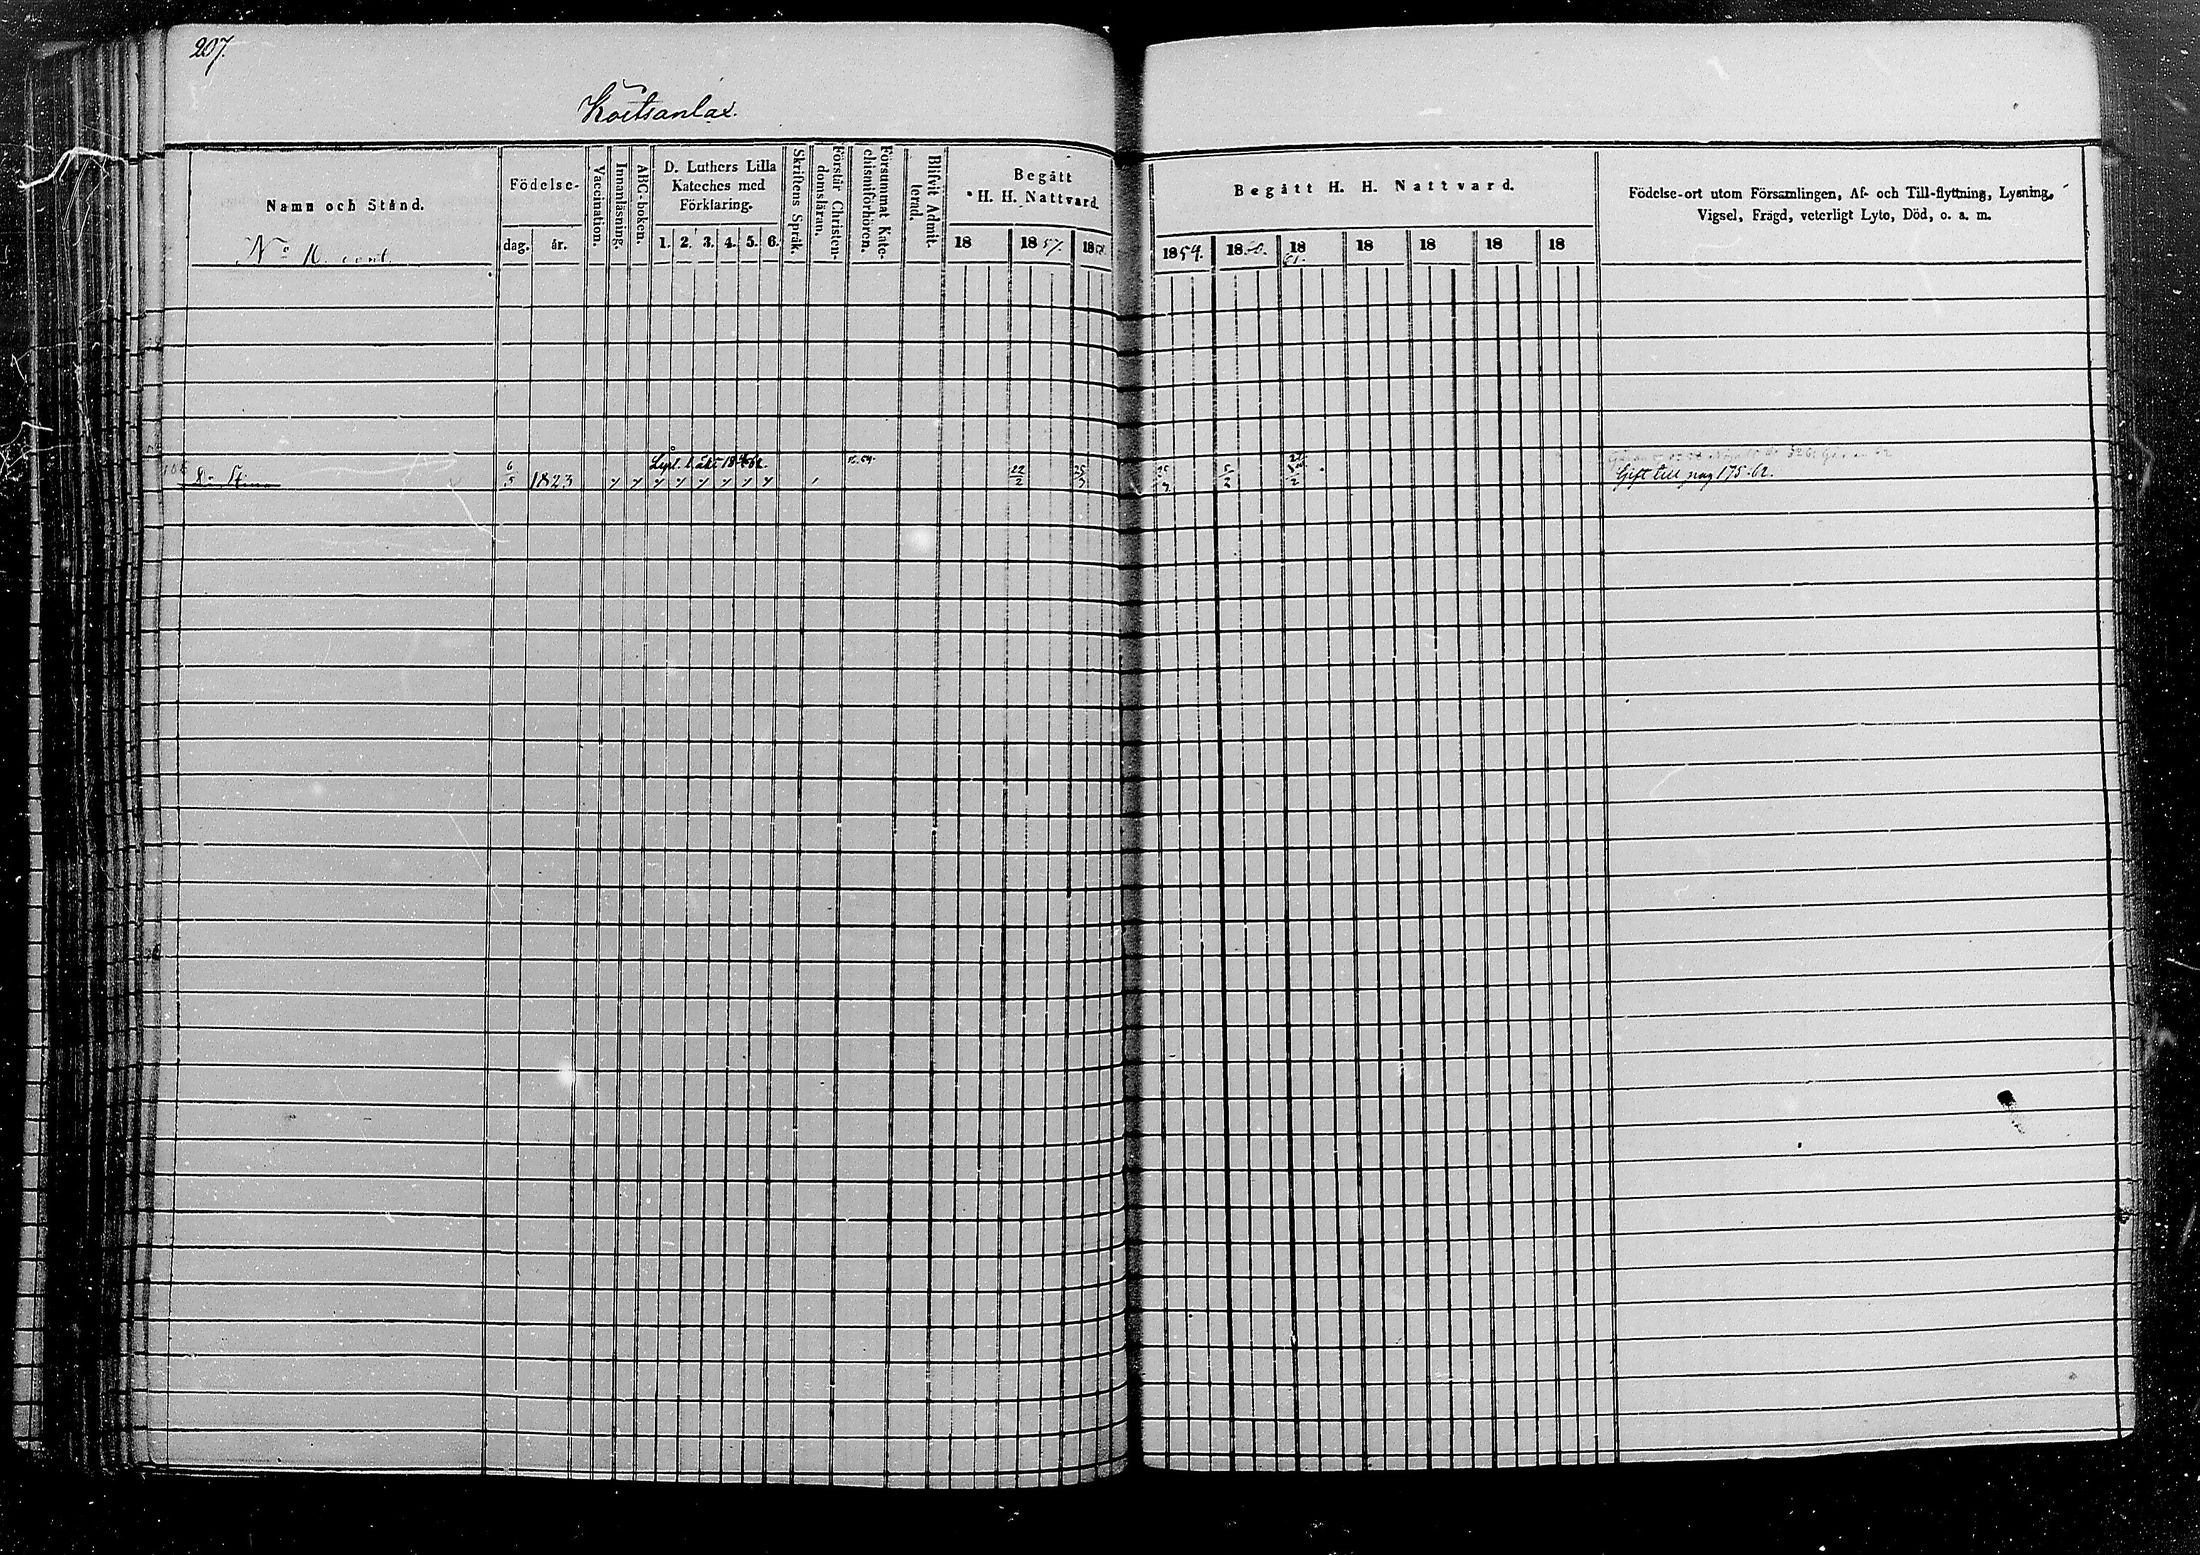 207.
Koitsanlax.
Namn och Stånd.
No 10. cont.
Födelse-
dag. år.
Vaccination.
Innanläsning.
ABC-boken.
D. Luthers Lilla
Kateches med
Förklaring.
1. 2. 3. 4. 5. 6.
Skriftens Språk.
Förstår Christen-
domsläran.
Försummat Kate-
chismiförhören.
Blifvit Admit-
terad.
Begått
H. H. Nattvard.
18 1857. 18
Begått H. H. Nattvard.
1859. 1860. 1861. 18 18 18 18
Födelse-ort utom Församlingen, Af- och Till-flyttning, Lysning,
Vigsel, Frägd, veterligt Lyte, Död, o. a. m.
Dr Stina 6/5 1823 22/2 5/2
Gift till pag 175-62.